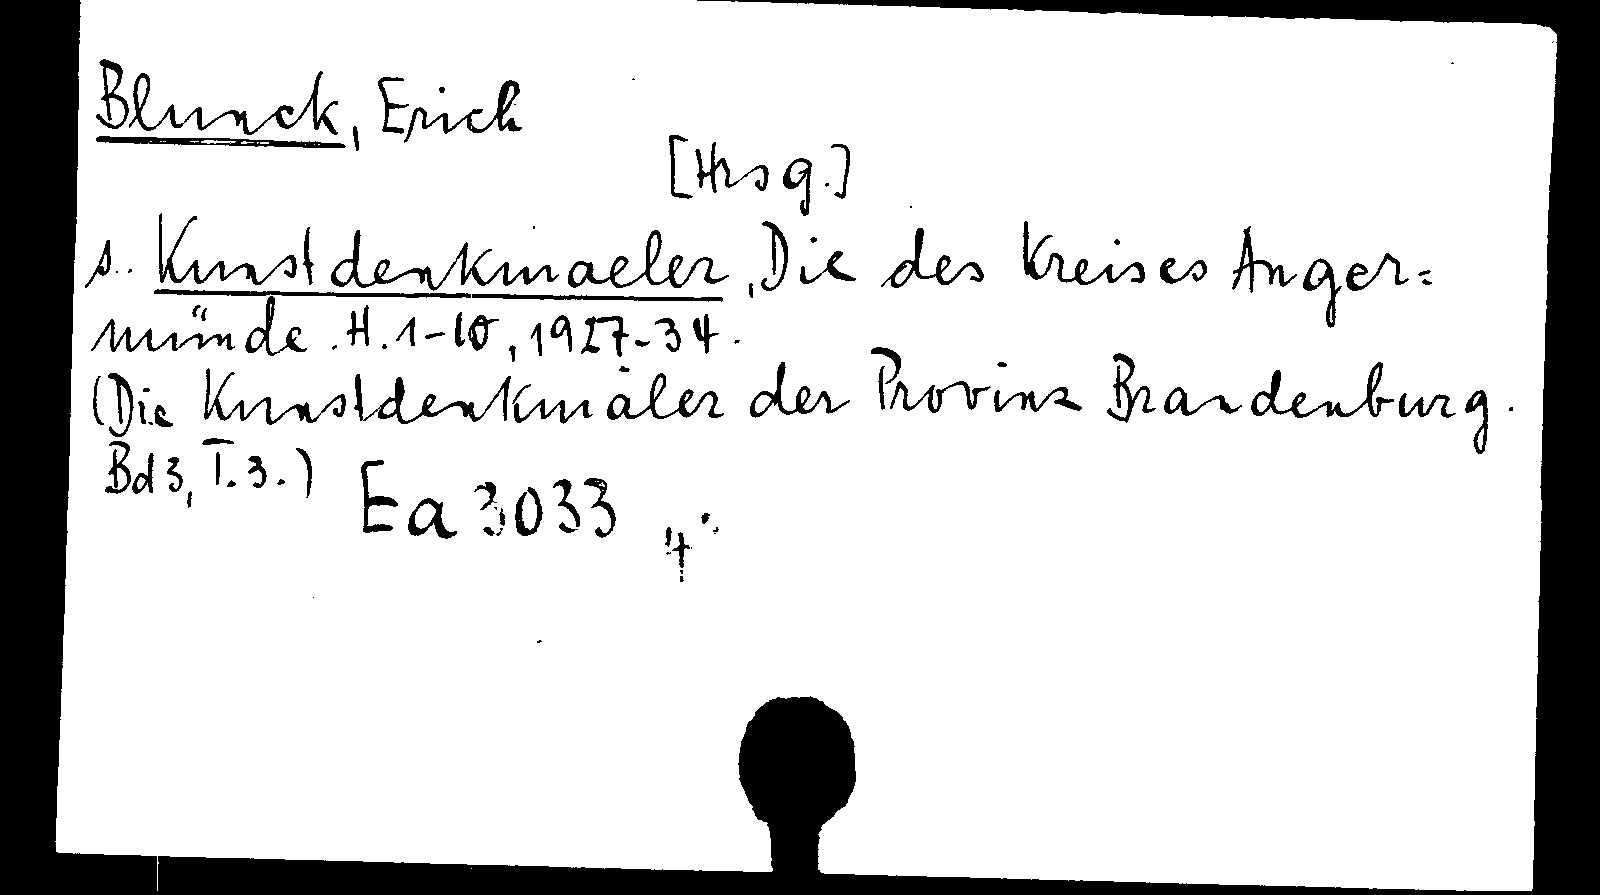 Blunck, Erich
[Hrsg.]
s. Kunstdenkmaeler, Die des Kreises Anger=
münde. H. 1-10, 1927-34.
(Die Kunstdenkmäler der Provinz Brandenburg.
Bd 3, T. 3.)
Ea 3033
4°